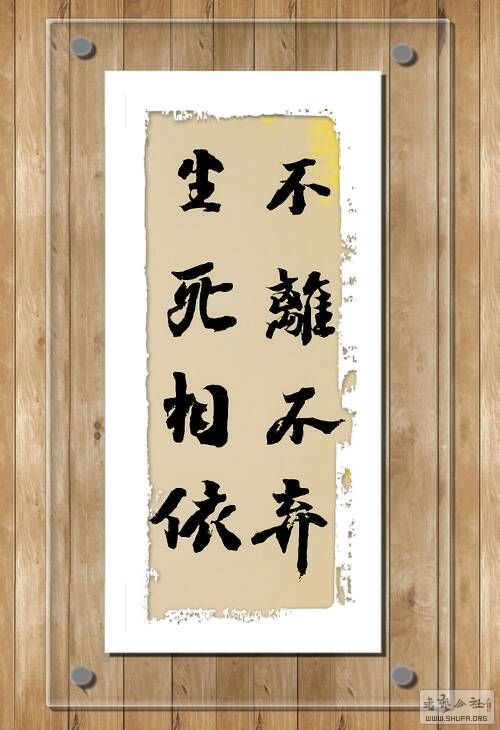 不離不弃
生死相依
书艺公社
WWW.SHUFA.ORG